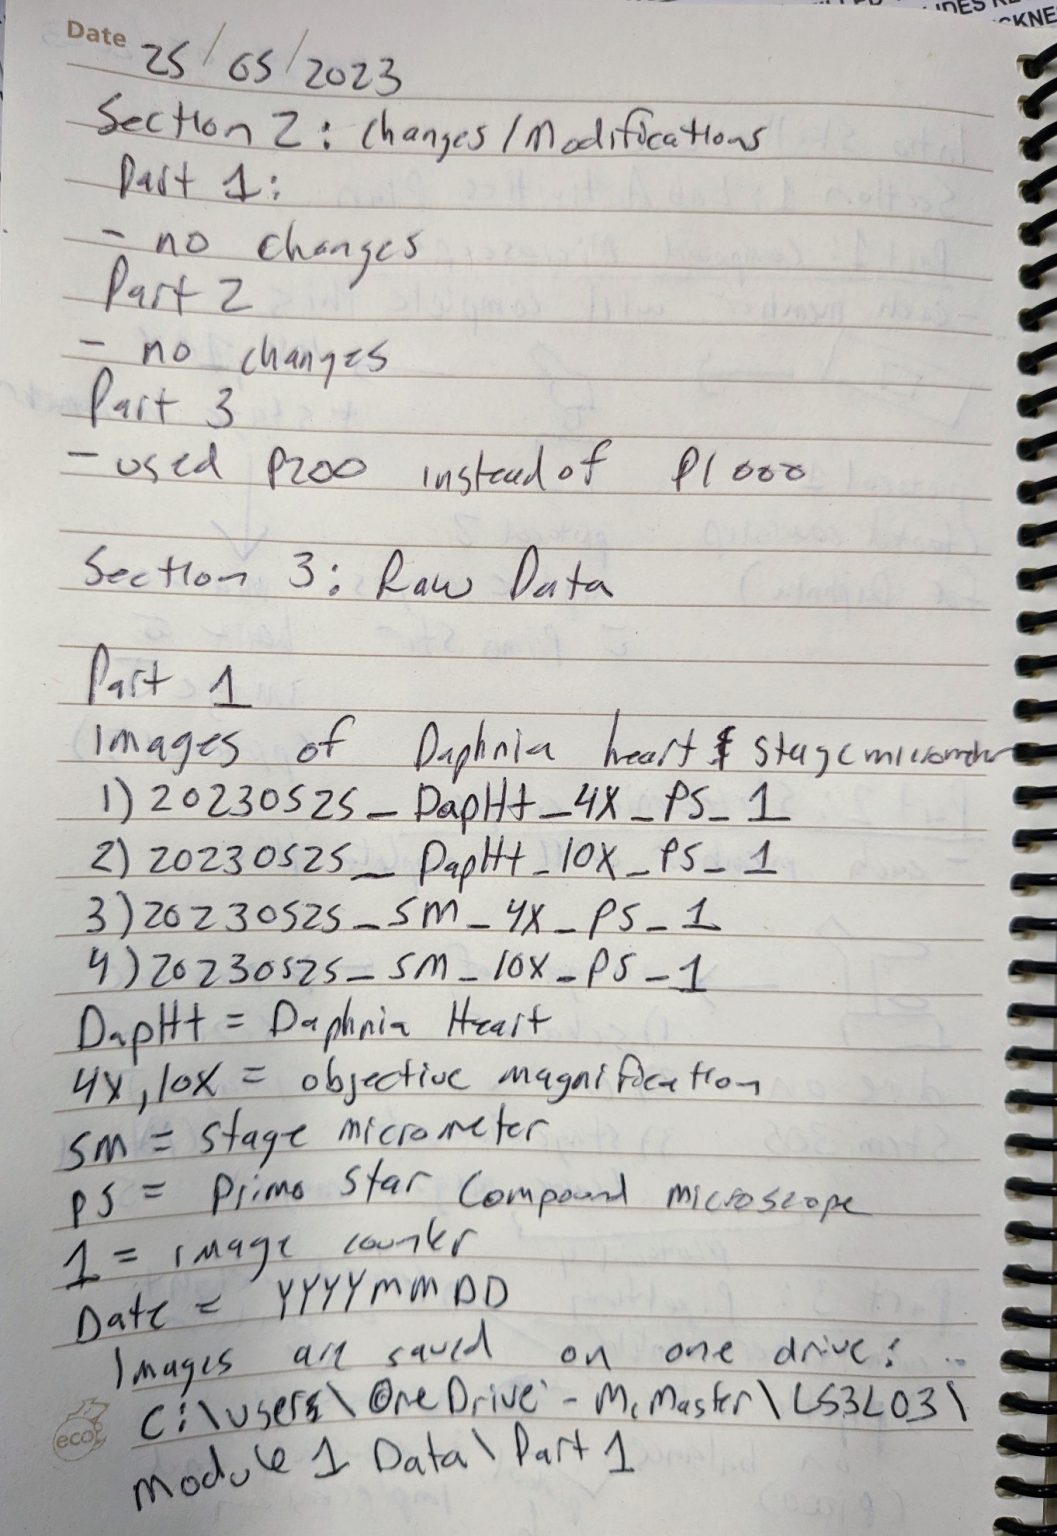 IDES
CKNE
Date 25/05/2023
Section 2: Changes/Modifications
Part 1:
- no changes
Part 2
- no changes
Part 3
- used P200 instead of P1000
Section 3: Raw Data
Part 1
Images of Daphnia heart & stage micrometer
1) 20230525_DapHt_4X_PS_1
2) 20230525_DapHt_10X_PS_1
3) 20230525_SM_4X_PS_1
4) 20230525_SM_10X_PS_1
DapHt = Daphnia Heart
4X, 10X = objective magnification
SM = stage micrometer
PS = Primo Star Compound microscope
1 = image counter
Date = YYYYMMDD
Images are saved on one drive:
C:\users\OneDrive - McMaster\LS3L03\
eco
Module 1 Data\Part 1